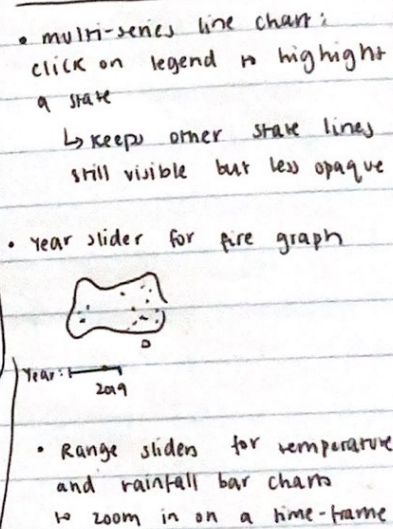 • multi-series line chart:
click on legend to highlight
a state
↳ keeps other state lines
still visible but less opaque
• Year slider for fire graph
Year:
2019
• Range sliders for temperature
and rainfall bar charts
to zoom in on a time-frame